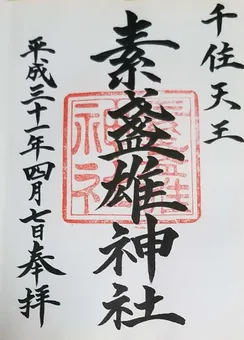 千住天王
素盞雄神社
平成三十一年四月七日奉拝